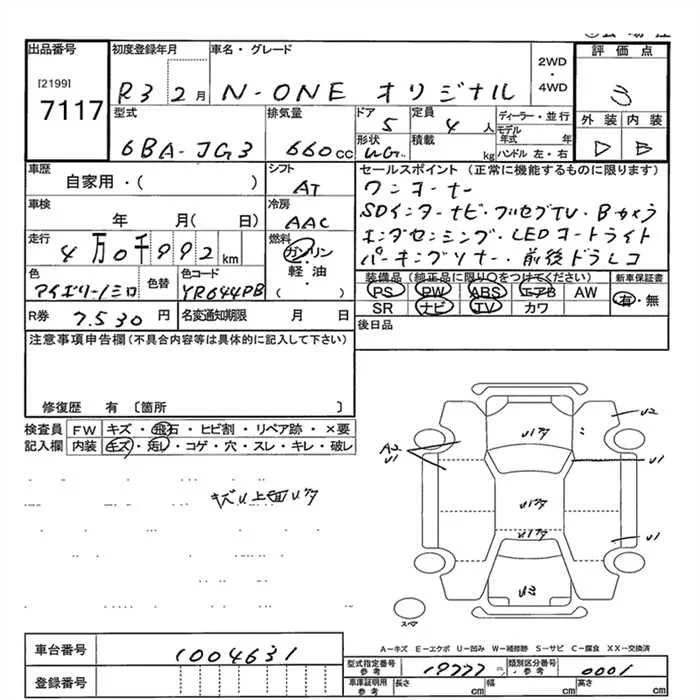 出品番号
[2199]
7117
初度登録年月
R3 2月
車名・グレード
N-ONE オリジナル
2WD
・
4WD
評価点
3
外装 内装
型式
6BA-JG3
排気量
660cc
ドア
5
定員
4人
形状
積載
kg
ディーラー・並行
モデル年式 年
ハンドル 左・右
車歴
自家用・( )
シフト
AT
セールスポイント (正常に機能するものに限ります)
ワンオーナー
SDインターナビ・フルセグTV・Bカメラ
ホンダセンシング・LEDオートライト
パーキングソナー・前後ドラレコ
車検
年 月( 日)
冷房
AAC
走行
4万0千992km
燃料
ガソリン
軽・油
・
( )
色
色替
色コード
YR644PB
装備品 (純正品に限り○をつけてください)
PS PW ABS エアB AW
SR ナビ TV カワ
新車保証書
有・無
R券
7,530円
名変通知期限 月 日
後日品
注意事項申告欄(不具合内容等は具体的に記入して下さい)
修復歴 有 〔箇所 〕
検査員記入欄
FW キズ・飛石・ヒビ割・リペア跡・×要
内装 キズ・汚し・コゲ・穴・スレ・キレ・破レ
U2
A2
U1
U1
U1
スマ
A-キズ E-エクボ U-凹み W-補修跡 S-サビ C-腐食 XX-交換済
車台番号
1004631
登録番号
型式指定番号
参考
19777
類別区分番号
参考
0001
車庫証明用
参考
長さ cm 幅 cm 高さ cm